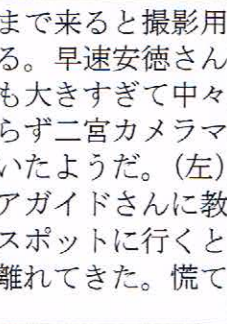 まで来ると撮影用
る。早速安徳さん
も大きすぎて中々
らず二宮カメラマ
いたようだ。(左)
アガイドさんに教
スポットに行くと
離れてきた。慌て